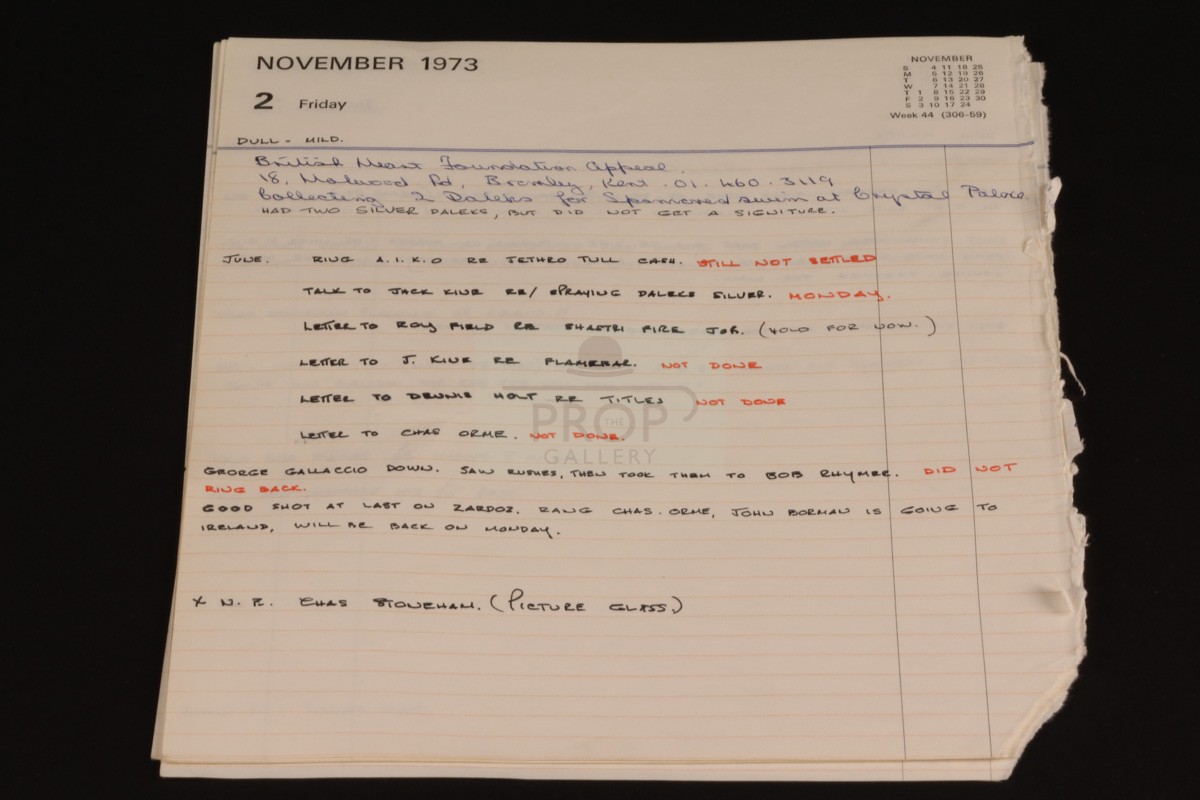 NOVEMBER 1973
2 Friday
NOVEMBER
S 4 11 18 25
M 5 12 19 26
T 6 13 20 27
W 7 14 21 28
T 1 8 15 22 29
F 2 9 16 23 30
S 3 10 17 24
Week 44 (306-59)
DULL - MILD.
British Heart Foundation Appeal.
18, Rd, Bromley, Kent. 01. 460. 3119
Collecting 2 Daleks for Sponsored swim at Crystal Palace.
HAD TWO SILVER DALEKS, BUT DID NOT GET A SIGNITURE.
JUNE. RING A.I.K.O RE JETHRO TULL CASH. STILL NOT SETTLED
TALK TO JACK KINE RE/ SPRAYING DALEKS SILVER. MONDAY.
LETTER TO ROY FIELD RE SHASTRI FIRE JOB. (HOLD FOR NOW.)
LETTER TO J. KINE RE FLAMEBAR. NOT DONE
LETTER TO DENNIS HOLT RE TITLES NOT DONE
LETTER TO CHAS ORME. NOT DONE.
GEORGE GALLACCIO DOWN. SAW RUSHES, THEN TOOK THEM TO BOB RHYMER. DID NOT
RING BACK.
GOOD SHOT AT LAST ON ZARDOZ. RANG CHAS. ORME, JOHN BORMAN IS GOING TO
IRELAND, WILL BE BACK ON MONDAY.
X N.R. CHAS STONEHAM. (PICTURE GLASS)
THE
PROP
GALLERY